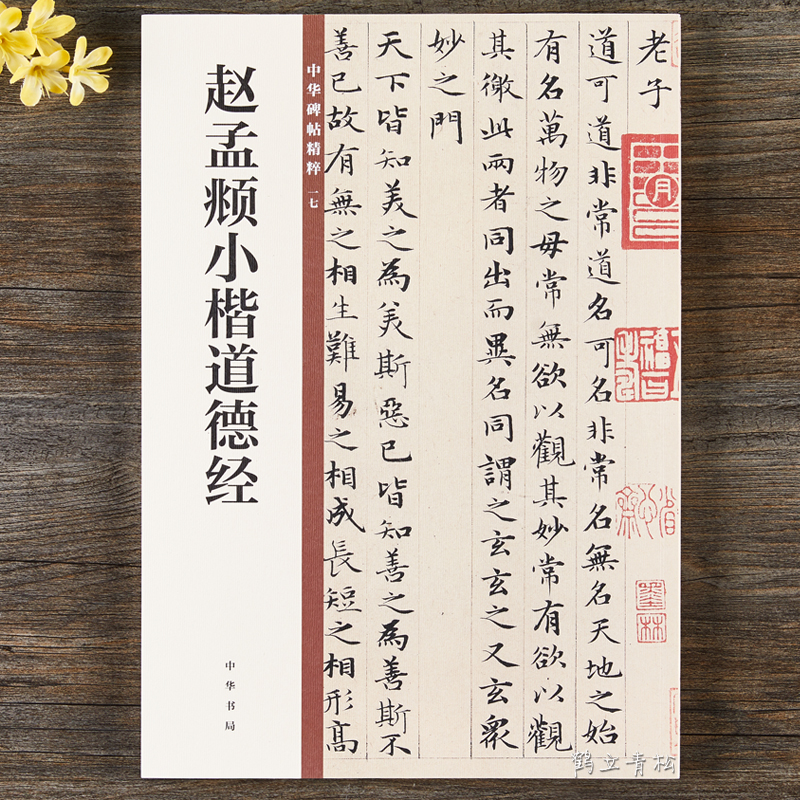 赵孟頫小楷道德经
中华书局
中华碑帖精粹 一七
老子
道可道非常道名可名非常名無名天地之始
有名萬物之母常無欲以觀其妙常有欲以觀
其徼此兩者同出而異名同謂之玄玄之又玄衆
妙之門
天下皆知美之為美斯惡已皆知善之為善斯不
善已故有無之相生難易之相成長短之相形高
墨林
鶴立青松